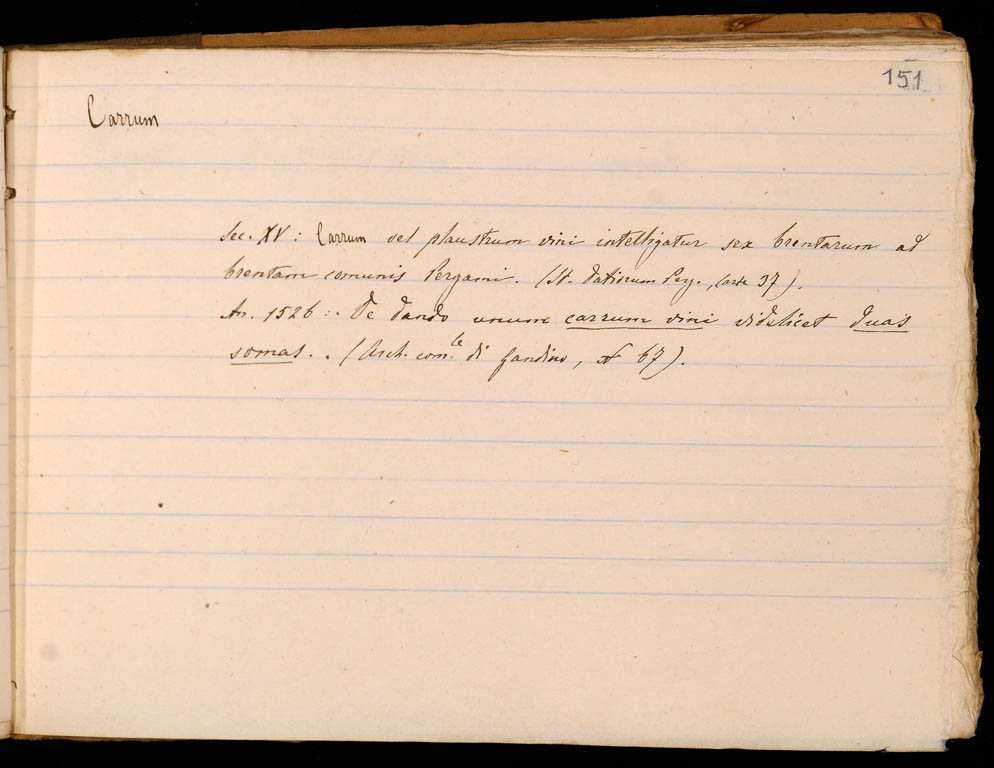 151
Carrum
Sec. XV: Carrum vel plaustrum vini intelligatur sex brentarum ad
brentam comunis Pergami. (St. datiorum Perg., carte 37).
An. 1526:. De dando unum carrum vini videlicet duas
somas. . (Arch. com.le di Gandino, N 67).